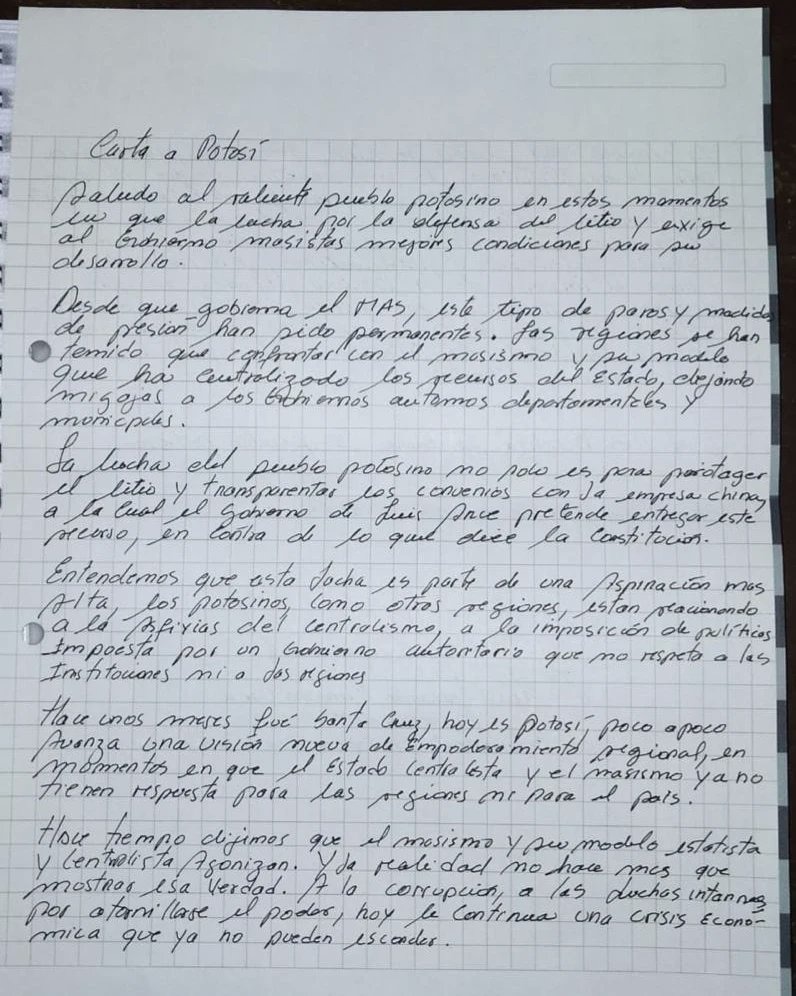 Carta a Potosí
Saludo al valiente pueblo potosino en estos momentos
en que la lucha por la defensa del litio y exige
al Gobierno masistas mejores condiciones para su
desarrollo.
Desde que gobierna el MAS, este tipo de paros y medidas
de presión han sido permanentes. Las regiones se han
temido que confrontar con el masismo y su modelo
que ha centralizado los recursos del Estado, dejando
migajas a los Gobiernos autonmos departamentales y
municipales.
La lucha del pueblo potosino no solo es para protager
el litio y transparentar los convenios con la empresa china,
a la cual el Gobierno de Luis Arce pretende entregar este
recurso, en contra de lo que dice la Constitución.
Entendemos que esta lucha es parte de una Aspiración mas
Alta, los potosinos, como otras regiones, estan reacionando
a la Asfixias del centralismo, a la imposición de políticas
Impoesta por un Gobierno autoritario que no respeta a las
Instituciones ni a las regiones
Hace unos meses fué Santa Cruz, hoy es Potosí, poco a poco
Avanza una visión nueva de Empoderamiento regional, en
momentos en que el Estado Centralista y el masismo ya no
tienen respuesta para las regiones ni para el país.
Hace tiempo dijimos que el masismo y su modelo estatista
y Centralista Agonizan. Y la realidad no hace mas que
mostrar esa Verdad. A la corrupción, a las luchas internas
por atornillarse el poder, hoy le continua una crisis Econó-
mica que ya no pueden esconder.